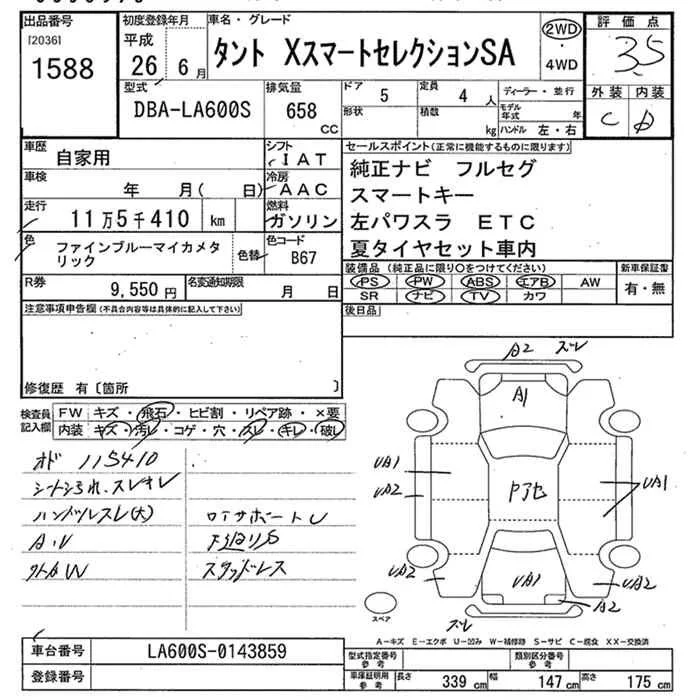 出品番号
[2036]
1588
初度登録年月
平成
26 6 月
車名・グレード
タント XスマートセレクションSA
2WD
・
4WD
評価点
3.5
外装 内装
C D
型式
DBA-LA600S
排気量
658
CC
ドア
5
定員
4 人
形状
積数
kg
ディーラー・並行
モデル
年式
年
ハンドル 左・右
車歴
自家用
シフト
IAT
車検
年 月( 日)
冷房
AAC
走行
11万5千410 km
燃料
ガソリン
色
ファインブルーマイカメタ
リック
色替
色コード
B67
R券
9,550 円
名変通知期限
月 日
セールスポイント(正常に機能するものに限ります)
純正ナビ フルセグ
スマートキー
左パワスラ ETC
夏タイヤセット車内
装備品(純正品に限り○をつけてください)
PS PW ABS エアB AW
SR ナビ TV カワ
新車保証書
有・無
後日品
注意事項申告欄(不具合内容等は具体的に記入して下さい)
修復歴 有〔箇所 〕
検査員
記入欄
FW キズ・飛石・ヒビ割・リペア跡・×要
内装 キズ・汚レ・コゲ・穴・スレ・キレ・破レ
オド 115410
シートシミ汚れ.スレキレ
ハンドルスレ(大)
A・U
外カW
ロアサポートU
下廻りS
スタッドレス
A2 ズレ
A1
UA1
UA2
Pアセ
UA1
UA2
UA1
UA2
A2
ズレ
スペア
A-キズ E-エクボ U-凹み W-補修跡 S-サビ C-腐食 XX-交換済
車台番号
LA600S-0143859
登録番号
型式指定番号
参考
類別区分番号
参考
車庫証明用
参考
長さ
339 cm
幅
147 cm
高さ
175 cm